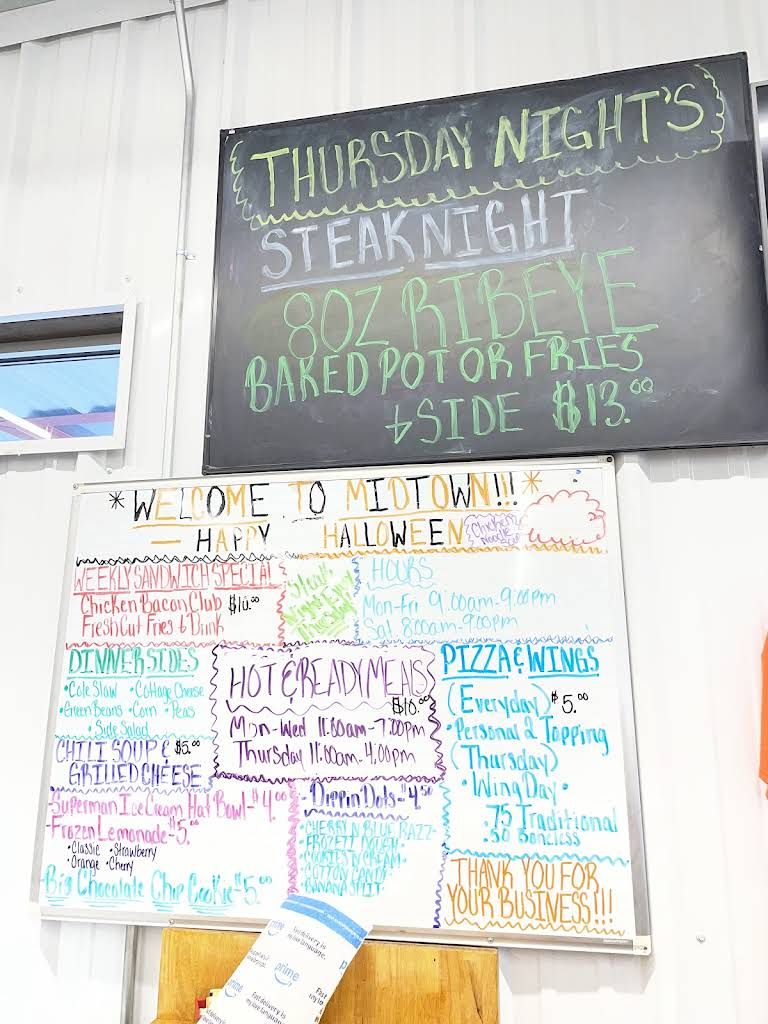 THURSDAY NIGHT'S
STEAK NIGHT
8OZ RIBEYE
BAKED POT OR FRIES
+ SIDE $13.00
*WELCOME TO MIDTOWN!!!*
- HAPPY HALLOWEEN
Chicken
Noodle
WEEKLY SANDWICH SPECIAL
Chicken Bacon Club $10.00
Fresh Cut Fries & Drink
Steak
Night Every
Thursday
HOURS
Mon-Fri 9:00am-9:00pm
Sat 8:00am-9:00pm
DINNER SIDES
•Cole Slaw •Cottage Cheese
•Green Beans •Corn •Peas
•Side Salad
CHILI SOUP & $5.00
GRILLED CHEESE
HOT & READY MEALS
$10.00
Mon-Wed 11:00am-7:00pm
Thursday 11:00am-4:00pm
PIZZA & WINGS
(Everyday) $5.00
•Personal 2 Topping
(Thursday)
•Wing Day•
.75 Traditional
.50 Boneless
-Superman Ice Cream Hat Bowl-$4.00
-Frozen Lemonade-$5.00
•Classic •Strawberry
•Orange •Cherry
Big Chocolate Chip Cookie $5.00
-Dippin' Dots-$4.50
•CHERRY N BLUE RAZZ-
•COOKIES N CREAM-
•COTTON CANDY
•BANANA SPLIT
THANK YOU FOR
YOUR BUSINESS!!!
prime